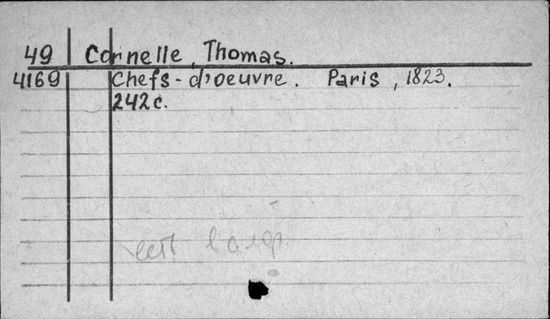 49 Cornelle, Thomas.
4169 Chefs-d'oeuvre. Paris, 1823.
242c.